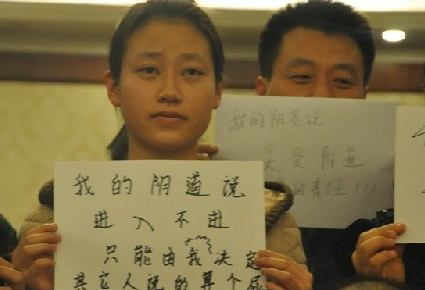 我的阴道说
进入不进
只能由我决定
其它人说的算个
我的阴茎说
关爱阴道
的责任!!!